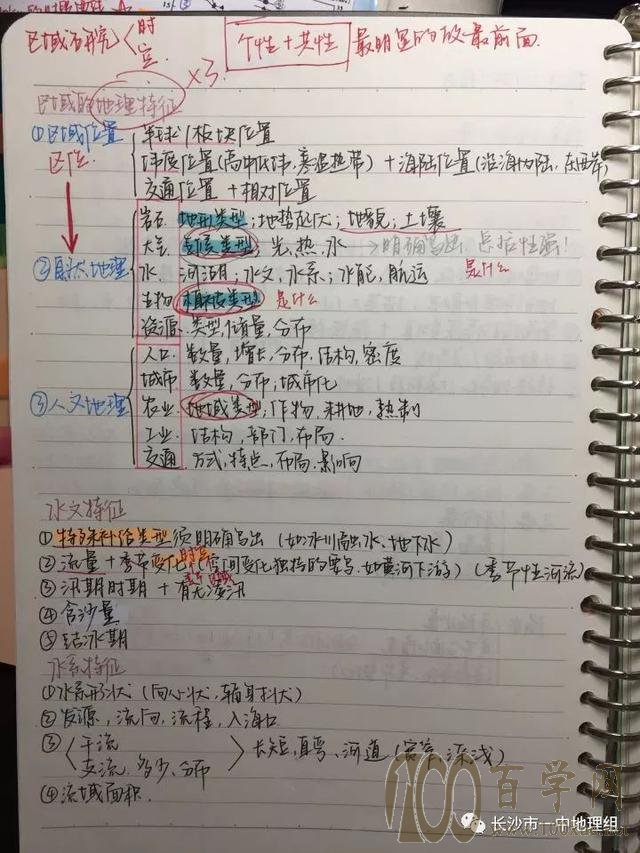 区域研究 时 空 ×3. 个性+共性 最明显的放最前面.
区域的地理特征
①区域位置 半球/板块位置
区位. 纬度位置(高中低纬.寒温热带)+海陆位置(沿海内陆.东西岸)
交通位置+相对位置
岩石 地形类型;地势起伏;地貌;土壤
大气. 气候类型;光.热.水→明确写出.总括性强!
②自然地理 水. 河湖;水文,水系;水能,航运 是什么
生物 植被类型 是什么
资源. 类型,储量,分布
人口. 数量,增长,分布.结构,密度
城市 数量,分布;城市化
③人文地理 农业. 地域类型;作物.耕地,熟制
工业. 结构,部门,布局.
交通. 方式,特点,布局.影响
水文特征
①特殊补给类型须明确写出(如冰川融水、地下水)
②流量+季节变化(空间变化独特的要写.如黄河下游)(季节性河流)
③汛期时期+有无凌汛
④含沙量
⑤结冰期
水系特征
①水系形状(向心状.辐射状)
②发源,流向,流程,入海口
③干流 支流.多少、分布 长短,直弯、河道(宽窄,深浅)
④流域面积.
100百学网
长沙市一中地理组